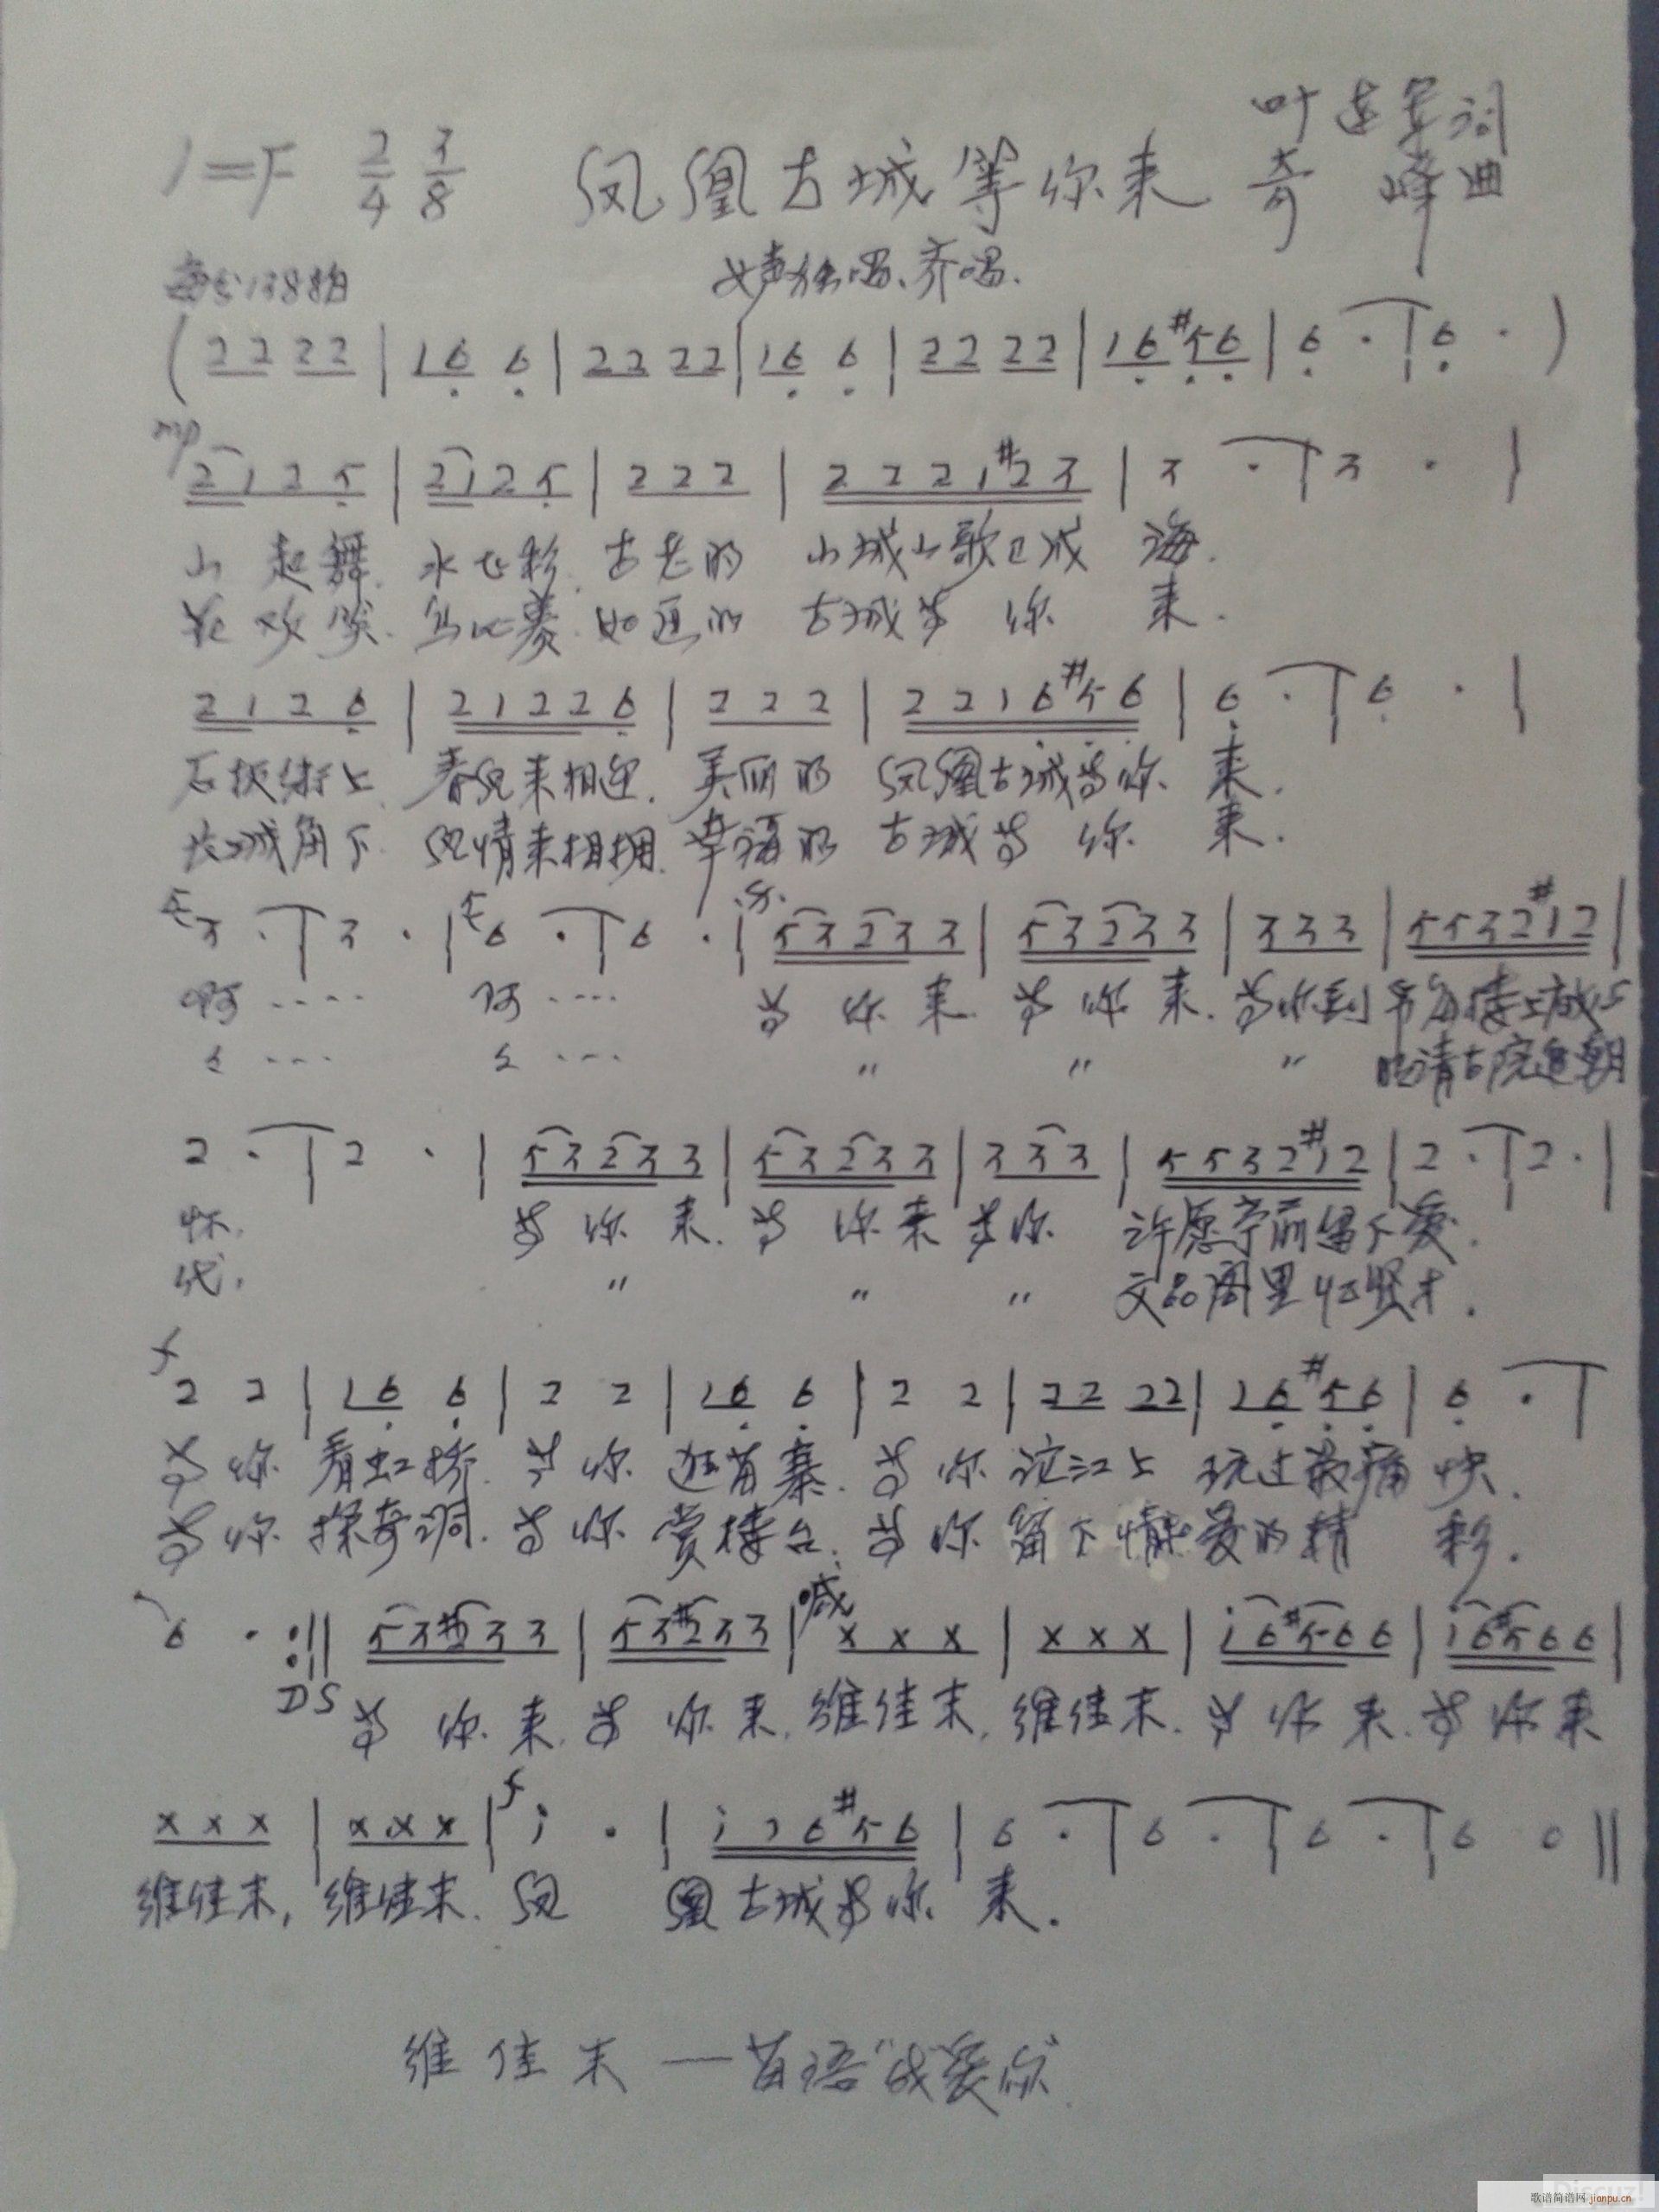 1=F 2/4 3/8 凤凰古城等你来 叶连军词
奇峰曲
每分138拍 女声独唱、齐唱.
(22 22 | 16 6 | 22 22 | 16 6 | 22 22 | 16 #56 | 6 · | 6 · )
mp
2125 | 2125 | 222 | 2221#23 | 3 · | 3 · |
山起舞. 水飞彩. 古老的 山城山歌已成海.
花欢笑. 鸟比美. 如画的 古城等你来.
2126 | 21226 | 222 | 2216#56 | 6 · | 6 · |
石板街上 春风来相迎. 美丽的 凤凰古城等你来.
古城角下 风情来相拥. 幸福的 古城等你来.
3 · | 3 · | 6 · | 6 · | 53233 | 53233 | 333 | 5532#12 |
啊···· 啊···· 等你来. 等你来. 等你到
〃 〃 〃 古院
2 · | 2 · | 53233 | 53233 | 333 | 5532#12 | 2 · | 2 · |
怀. 等你来. 等你来 等你 许愿亭前留下爱.
代. 〃 〃 〃 文昌阁里忆贤才.
f
2 2 | 16 6 | 2 2 | 16 6 | 2 2 | 22 22 | 16 #56 | 6 · |
等你看虹桥. 等你逛苗寨. 等你沱江上 玩过最痛快.
等你探奇洞. 等你赏楼台. 等你留下情爱的精彩.
喊
6 · :|| 53#233 | 53#233 | x x x | x x x | i6#566 | i6#566 |
DS 等你来. 等你来. 维佳末, 维佳末. 等你来. 等你来
f
x x x | x x x | i · | ii6#56 | 6 · | 6 · | 6 · | 6 0 ||
维佳末, 维佳末. 凤凰古城等你来.
维佳末——苗语“我爱你”
Discuz!
歌谱简谱网 jianpu.cn